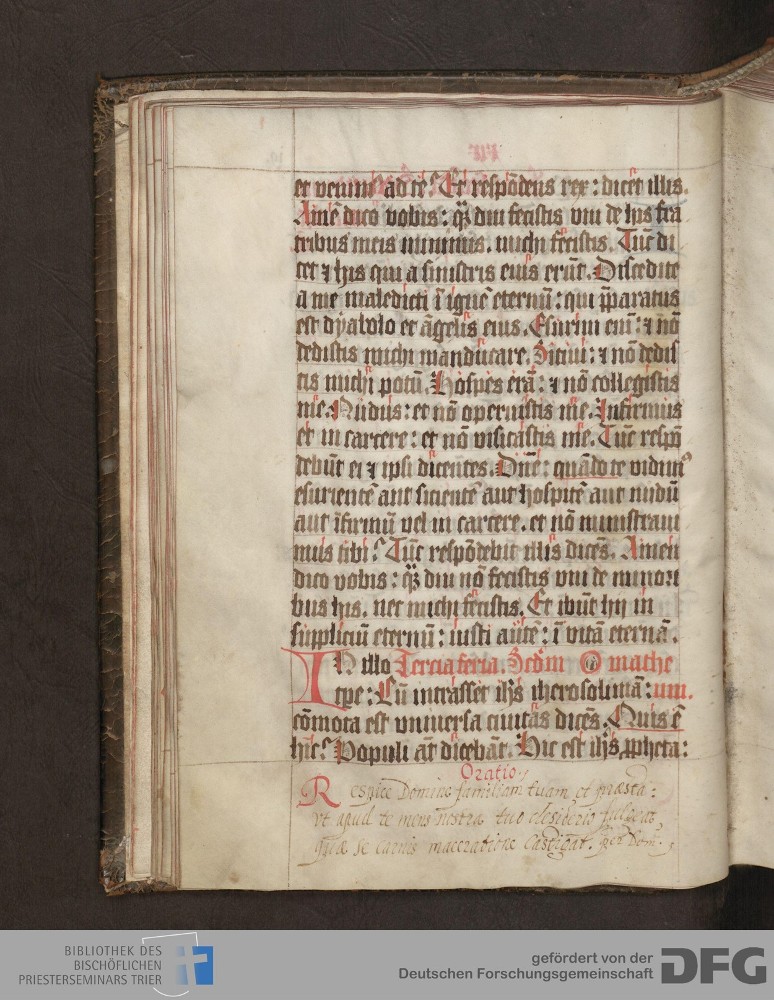 et venim⁹ ad te? Et respōdens rex: dicet illis.
Amē dico vobis: qᷓ diu fecistis vni de his fra
tribus meis minimis. michi fecistis. Tūc di
cet ⁊ his qui a sinistris eius erūt. Discedite
a me maledicti ī ignē eternū: qui p̄paratus
est dyabolo et āgelis eius. Esuriui eni᷒: ⁊ nō
dedistis michi manducare. Sitiui: ⁊ nō dedis
tis michi potū. Hospes erā: ⁊ nō collegistis
me. Nudus: et nō operuistis me. Infirmus
et in carcere: et nō visitastis me. Tūc respō
debūt ei ⁊ ipsi dicentes. Dn̄e: quādo te vidim⁹
esurientē aut sicientē aut hospitē aut nudū
aut īfirmū vel in carcere. et nō ministraui
mus tibi? Tūc respōdebit illis dicēs. Amen
dico vobis: qᷓ diu nō fecistis vni de minori
bus his. nec michi fecistis. Et ibūt hij in
suppliciū eternū: iusti autē: ī vitā eternā.
IN illo Tercia feria. Scdm Mathe
tp̄e: Cū intrasset ih̄s iherosolimā: um.
cōmota est vniuersa ciuitas dicēs. Quis ē
hic? Populi āt dicebāt. Hic est ih̄s ꝓpheta:
Oratio
Respice Domine familiam tuam et præsta:
vt apud te mens nostra tuo desiderio fulgeat,
quæ se carnis maceratione castigat. per Dom.
BIBLIOTHEK DES
BISCHÖFLICHEN
PRIESTERSEMINARS TRIER
gefördert von der
Deutschen Forschungsgemeinschaft
DFG